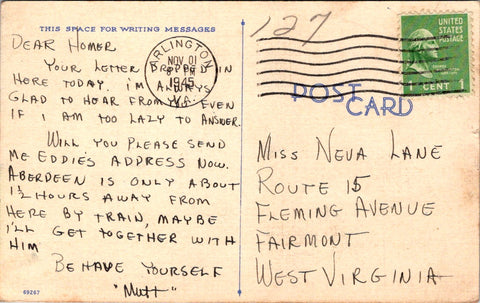 THIS SPACE FOR WRITING MESSAGES
DEAR HOMER
YOUR LETTER DROPPED IN
HERE TODAY. I'M ALWAYS
GLAD TO HEAR FROM YOU EVEN
IF I AM TOO LAZY TO ANSWER.
WILL YOU PLEASE SEND
ME EDDIE'S ADDRESS NOW.
ABERDEEN IS ONLY ABOUT
1½ HOURS AWAY FROM
HERE BY TRAIN, MAYBE
I'LL GET TOGETHER WITH
HIM
BEHAVE YOURSELF
"MUTT"
69267
127
ARLINGTON
NOV 01
PM
1945
VA.
UNITED
STATES
POSTAGE
1 CENT 1
POST CARD
MISS NEVA LANE
ROUTE 15
FLEMING AVENUE
FAIRMONT
WEST VIRGINIA